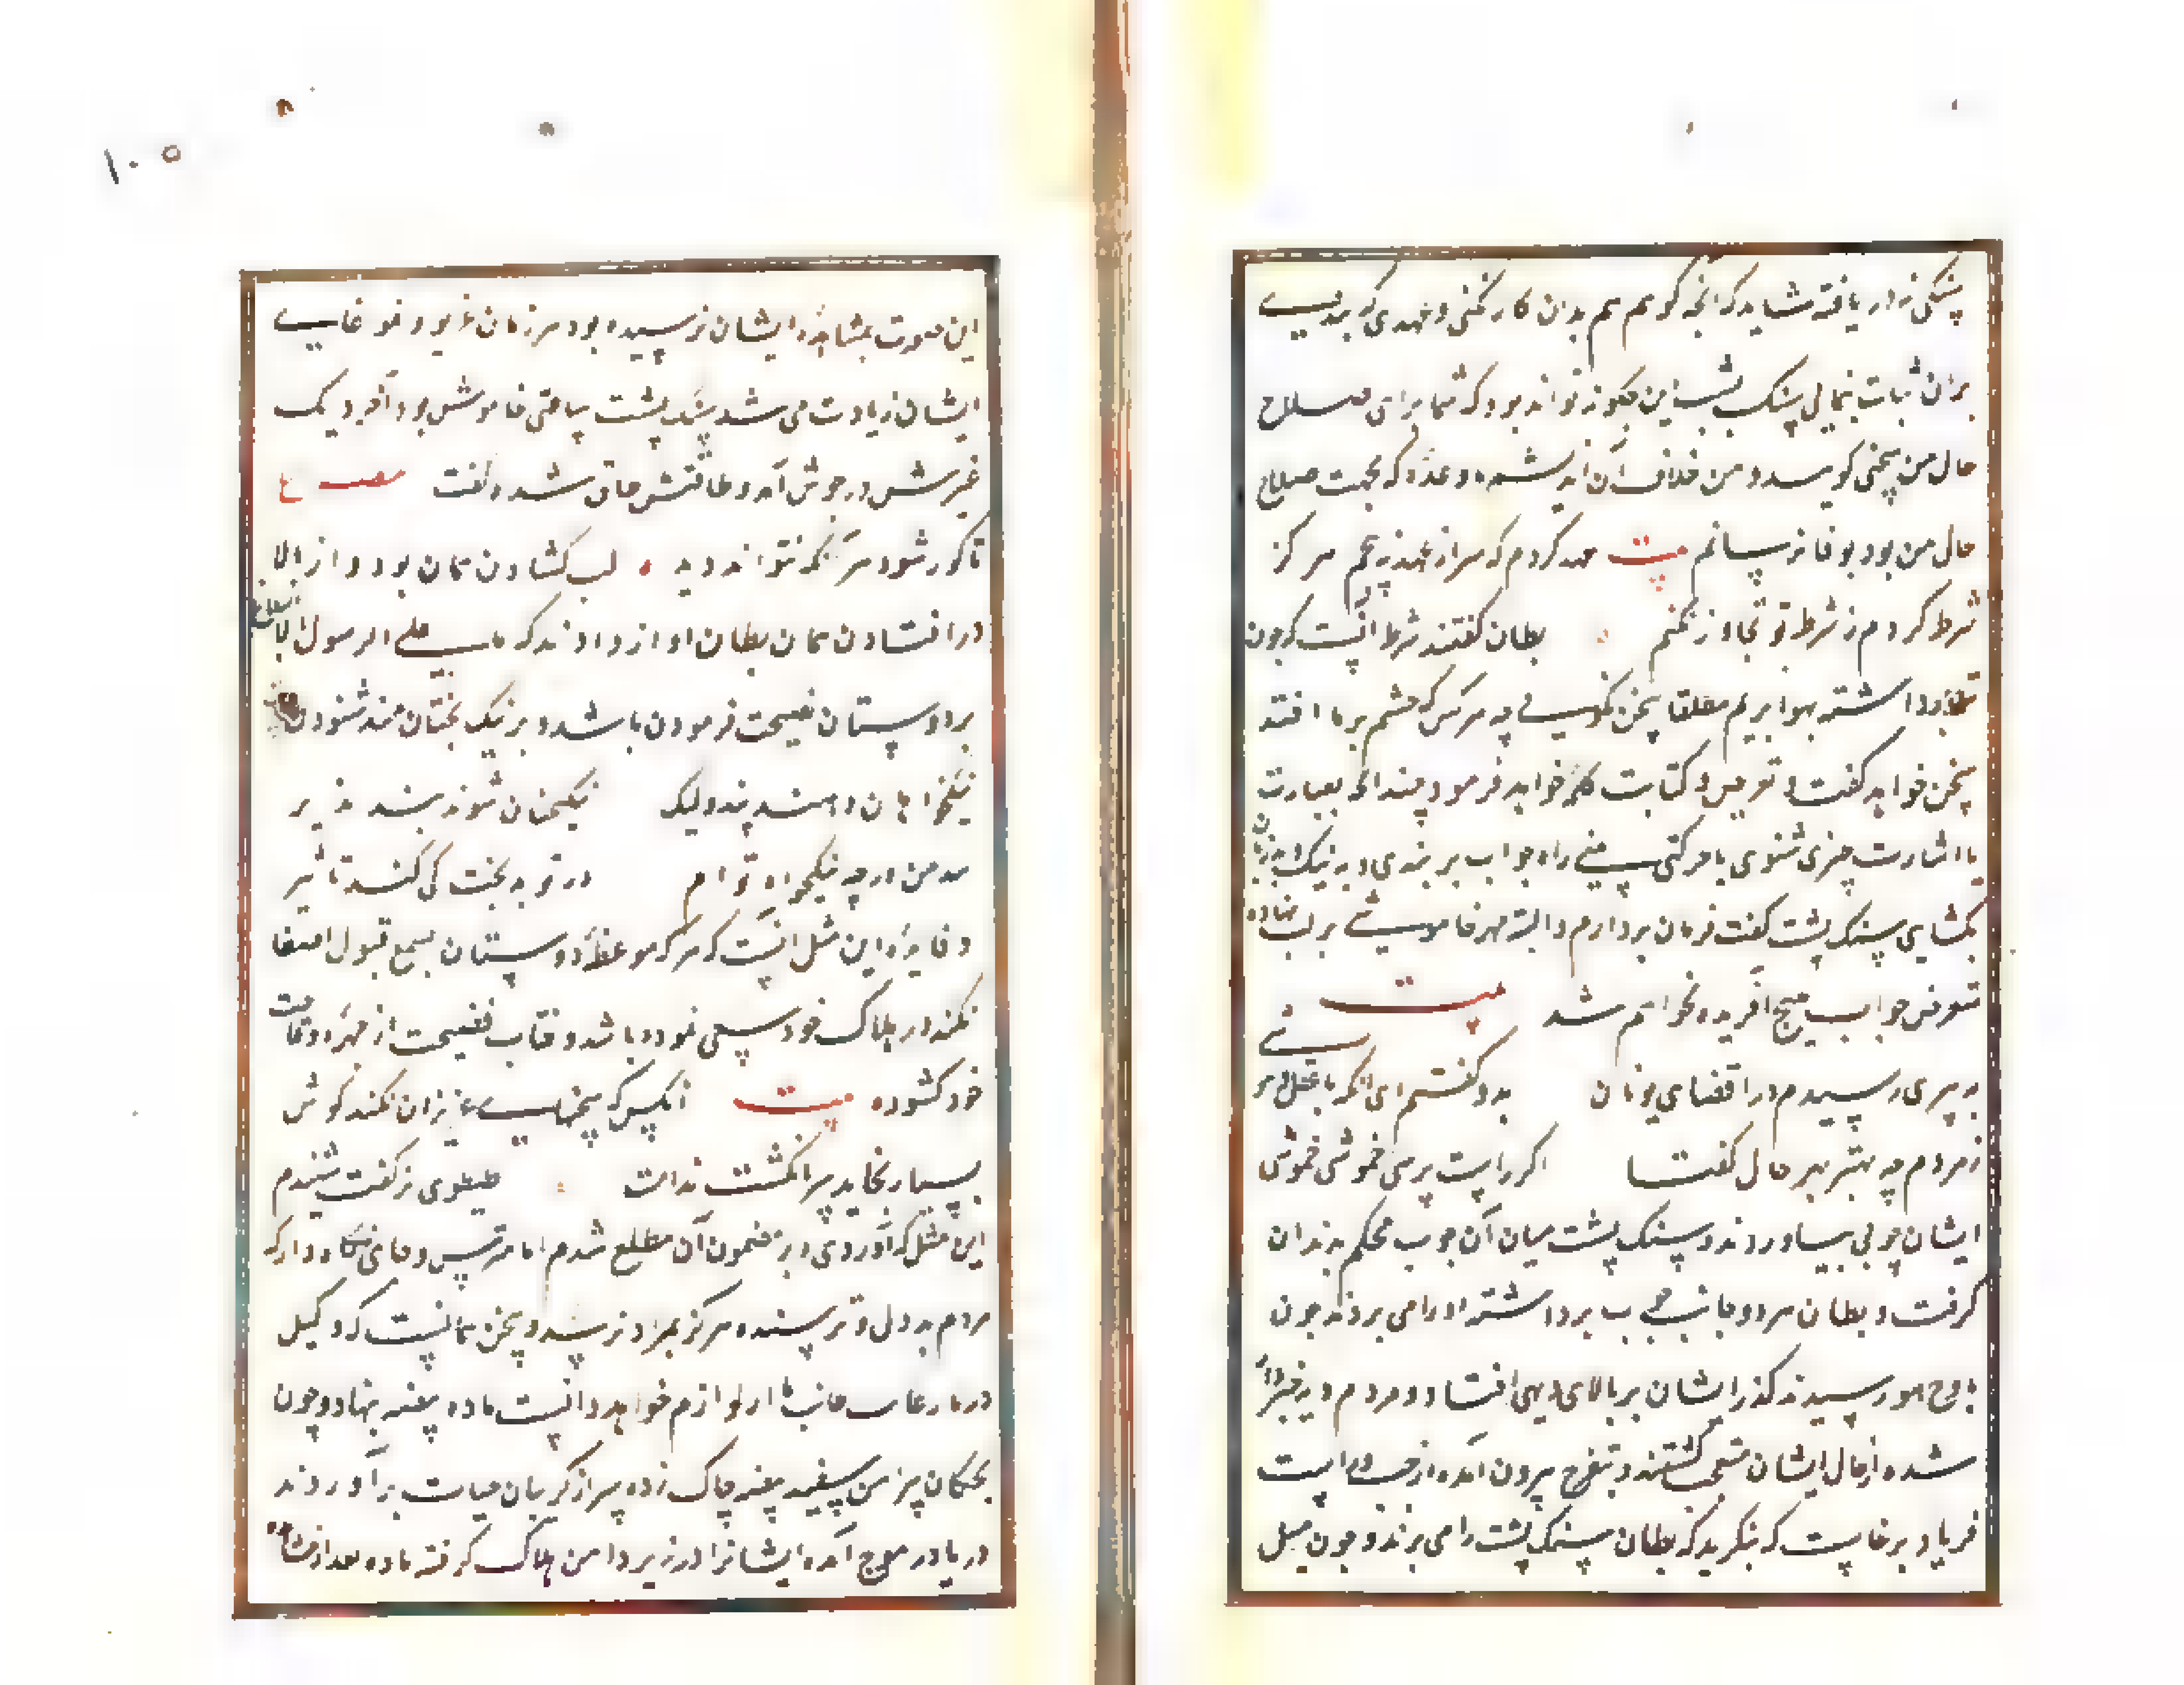 برآن ثبات ننمایی سنک پشت این چکونه تواند بود که شما برای صلاح
حال من سخنی کویید و من خلاف آن اندیشم و وعده که بجهت صلاح
حال من بود بوفا نرسانم بیت عهد کردم که سر از عهد نپیچم هرکز
شرط کردم ز شرط تو تجاوز نکنم بطان کفتند شرط آنست که چون
ترا برداشته بهوا بریم مطلقا سخن نکویی چه هر کس که چشم بر ما افتد
سخن خواهد کفت و تعریض و کنایت خواهد فرمود چندانکه بعبارت
یا اشارت چیزی شنوی یا حرکتی بینی راه جواب بربندی و به نیک و بد زبان
نکشایی سنک پشت کفت فرمان بردارم و البته مهر خاموشی بر لب نهاده
متعرض جواب هیچ آفریده نخواهم شد بیت
به پیری رسیدم در اقصای یونان بدو کفتم ای آنکه با عقل و هوشی
ز مردم چه بهتر بهر حال کفتا اکر راست پرسی خموشی خموشی
ایشان چوبی بیاوردند و سنک پشت میان آن چوب محکم بدندان
کرفت و بطان هر دو جانب چوب برداشته او را می بردند چون
باوج هوا رسیدند کذر ایشان بر بالای دیهی افتاد و مردم دیه خبردار
شده از حال ایشان متعجب کشتند و بتفرج بیرون آمده از چپ و راست
فریاد برخاست که بنکرید که بطان سنک پشت را می برند و چون مثل
۱۰۵
این صورت بمشاهده ایشان نرسیده بود هر زمان غریو و غوغای
ایشان زیادت می شد سنک پشت ساعتی خاموش بود آخر دیک
غیرتش در جوش آمد و طاقتش طاق شده کفت مصرع
تا کور شود هر آنکه نتواند دید لب کشادن همان بود و از بالا
در افتادن همان بطان آواز دادند که ما علی الرسول الا البلاغ
بر دوستان نصیحت فرمودن باشد و بر نیک بختان پند شنودن
نیکخواهان دهند پند ولیک نیکبختان شوند پند پذیر
پند من ارچه نیکخواه توام در تو بدبخت کی کند تاثیر
و فایده این مثل آنست که هر که موعظه دوستان بسمع قبول اصغا
نکند در هلاک خود سعی نموده باشد و نقاب فضیحت از چهره وقاحت
خود کشوده بیت آنکس که سخنهای عزیزان نکند کوش
بسیار بخاید سر انکشت ندامت طیطوی نر کفت شنیدم
این مثل که آوردی و بر مضمون آن مطلع شدم اما مترس و جای نکاه دار که
مردم بد دل و ترسنده هرکز بمراد نرسند و سخن همانست که وکیل
دریا رعایت جانب ما از لوازم خواهد دانست ماده بیضه بنهاد و چون
بچکان پیرهن سفید بیضه چاک زده سر از کریبان حیات برآوردند
دریا در موج آمده ایشانرا در زیر دامن هلاک کرفت ماده بعد از مشاهده